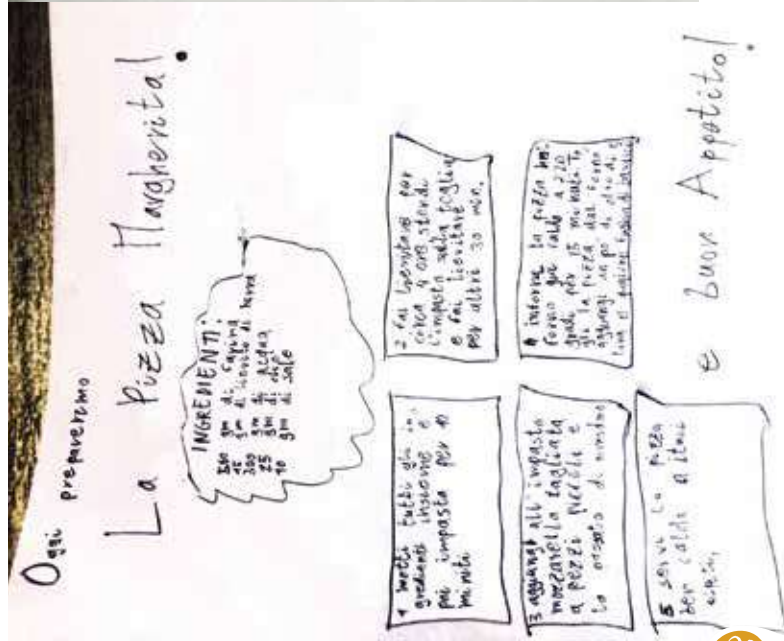 Oggi prepareremo
La Pizza Margherita!
INGREDIENTI:
gm di farina
15 gm di lievito di birra
300 gm di acqua
25 gm di olio
10 gm di sale
1 metti tutti gli in-
gredienti insieme e
poi impasta per 10
minuti
2 Fai lievitare per
circa 4 ore stendi
l'impasto nella teglia
e fai lievitare
per altri 30 min.
3 aggiungi all'impasto
mozzarella tagliata
a pezzi piccoli e
4 inforna la pizza
forno caldo a 220
gradi per 15 minuti To
gli la pizza dal forno
aggiungi un po di olio di
foglia di basilico
5 servi la pizza
ben calda
e buon Appetito!